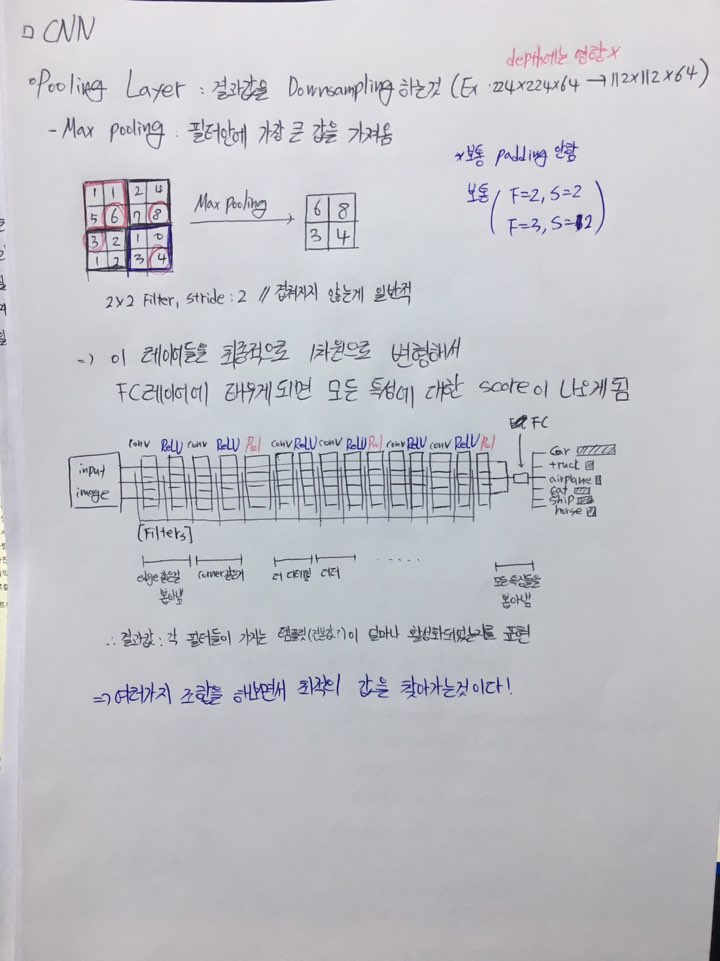 □ CNN
depth에는 영향 x
• Pooling Layer : 결과값을 Downsampling 하는것 (Ex. 224x224x64 → 112x112x64)
- Max pooling : 필터안에 가장 큰 값을 가져옴
* 보통 padding 안함
보통 ( F=2, S=2
F=3, S=2 )
1 1 2 4
5 6 7 8
3 2 1 0
1 2 3 4
Max Pooling
6 8
3 4
2x2 Filter, stride : 2 // 겹쳐지지 않는게 일반적
=> 이 레이어들을 최종적으로 1차원으로 변형해서
FC레이어에 태우게되면 모든 특성에 대한 score이 나오게됨
FC
conv ReLU conv ReLU Pool conv ReLU conv ReLU Pool conv ReLU conv ReLU Pool
input
image
car
truck
airplane
cat
ship
horse
[Filters]
edge같은걸
뽑아냄
corner같은거
더 디테일
더더
.....
모든 특징들을
뽑아냄
∴ 결과값 : 각 필터들이 가지는 템플릿( )이 얼마나 활성화되었는지를 표현
=> 여러가지 조합을 해보면서 최적의 값을 찾아가는것이다!